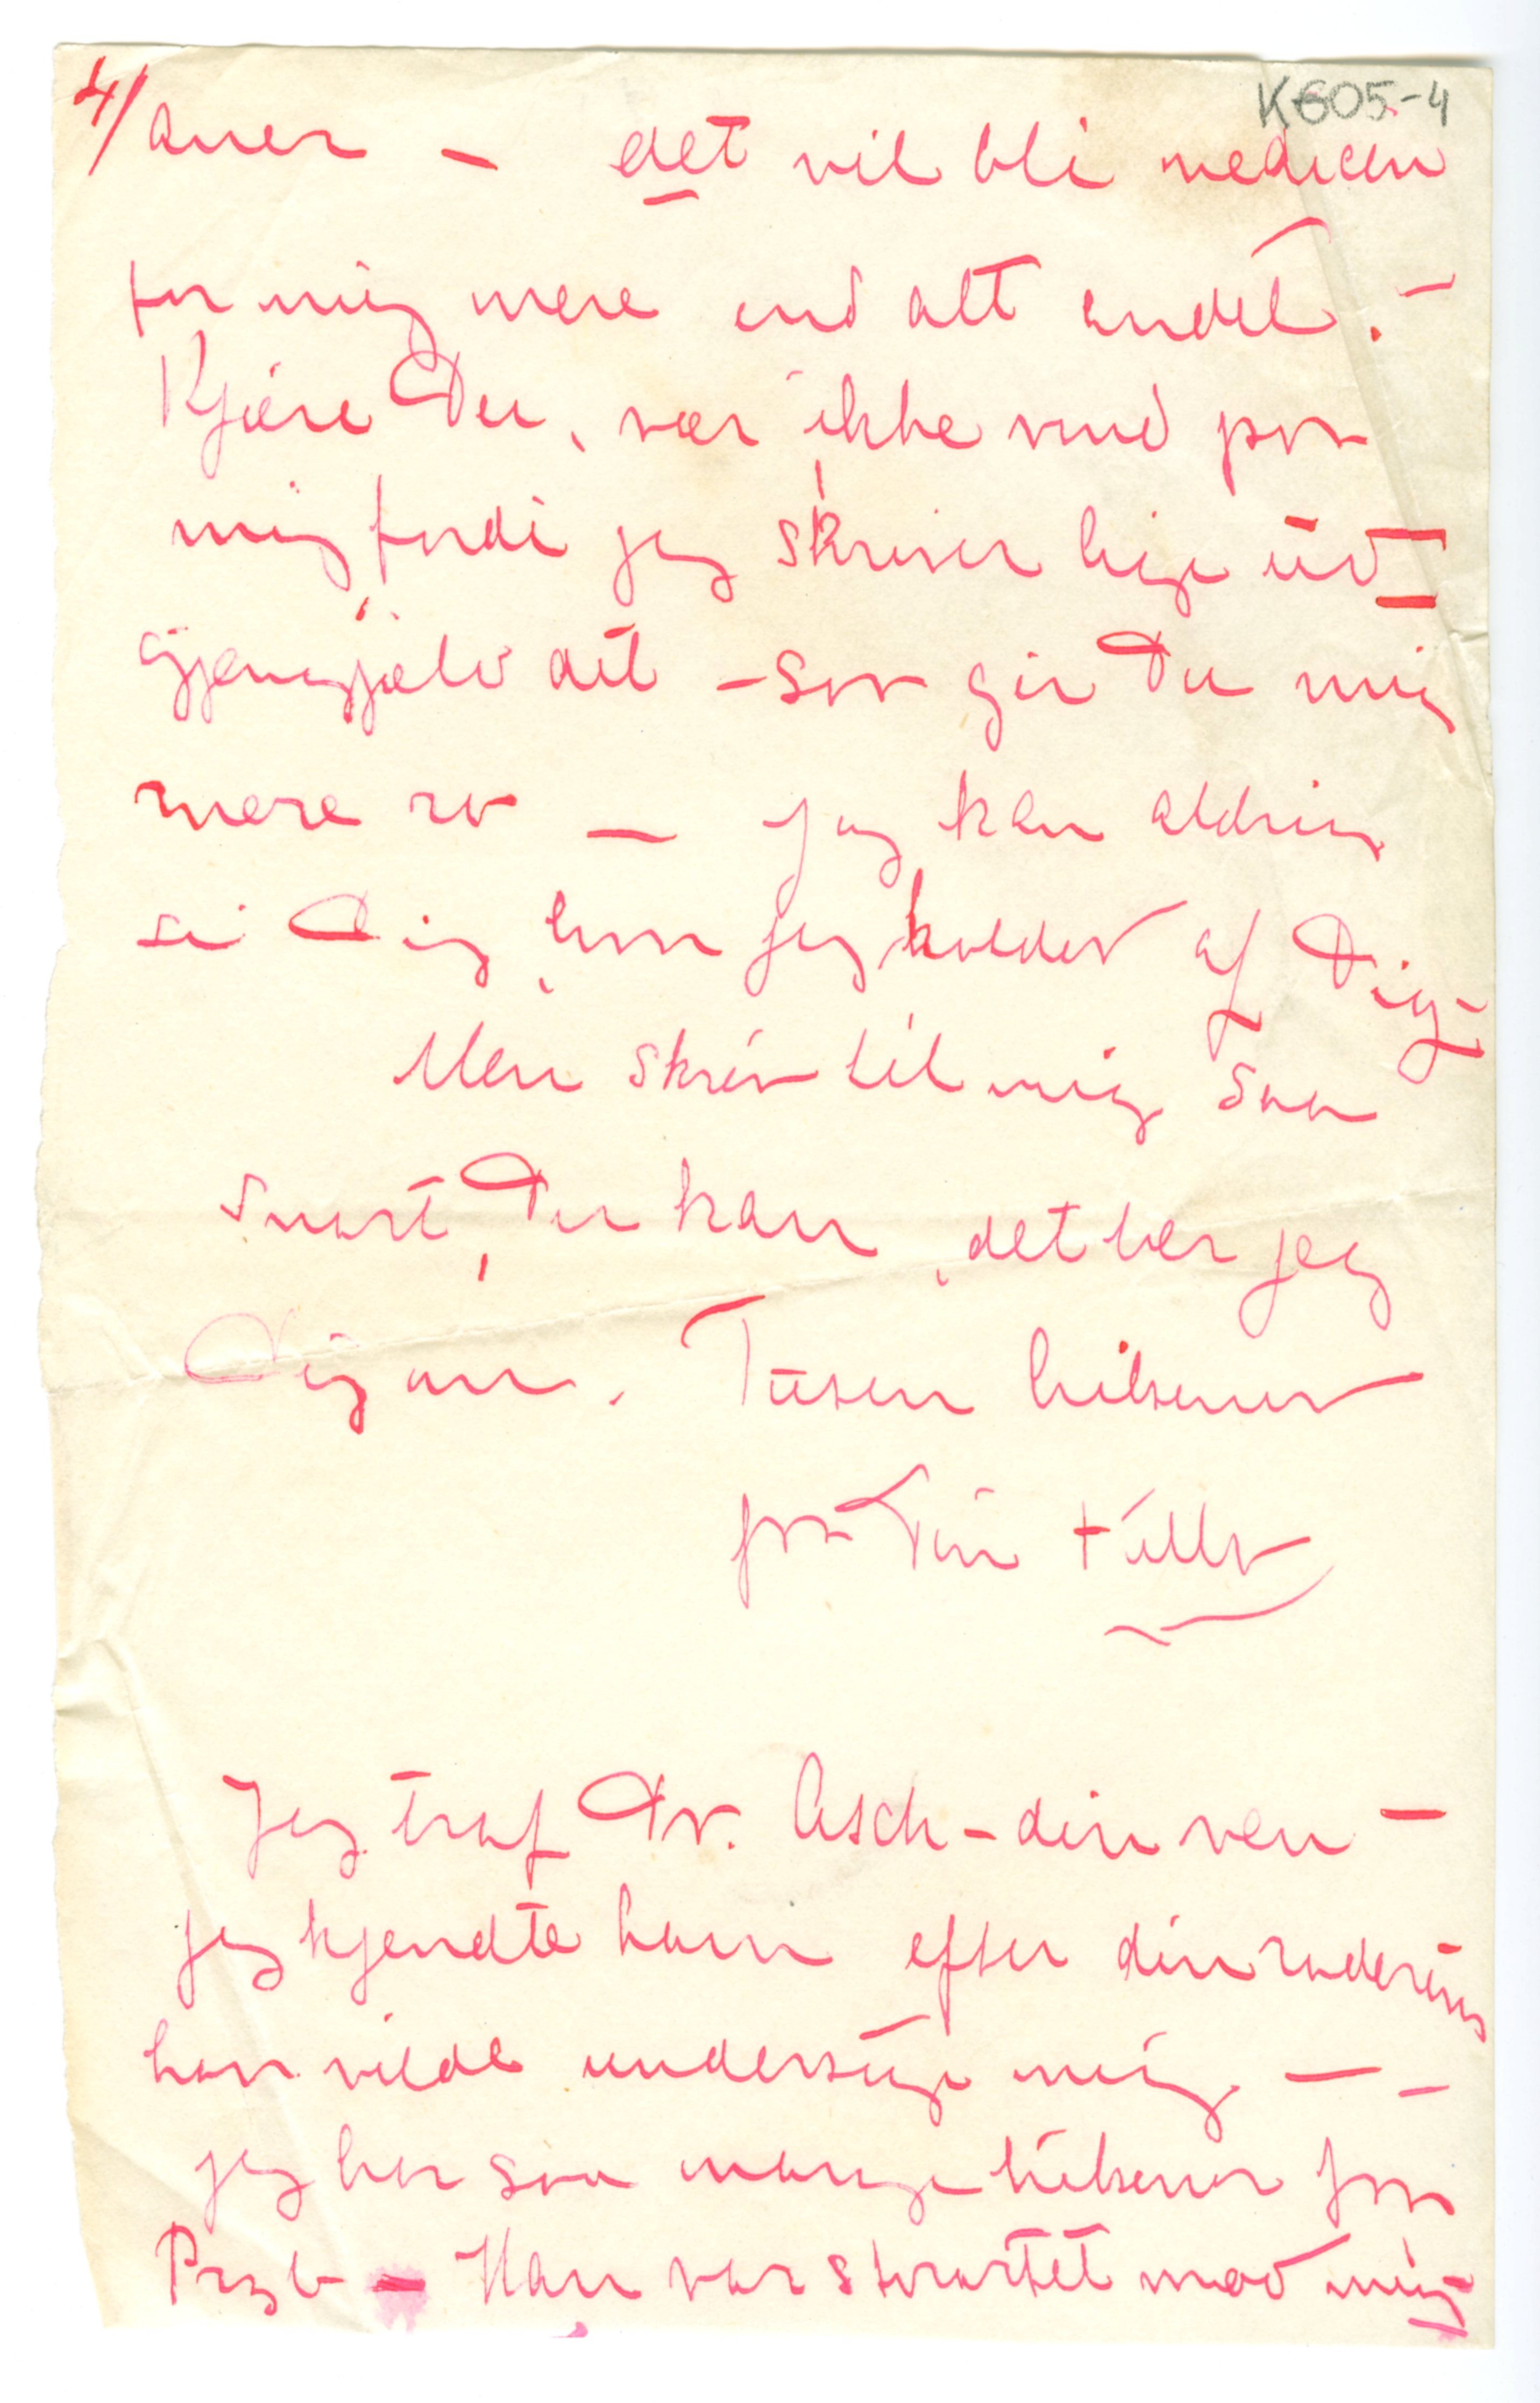 4/
K605-4
aner – det vil bli medicin
for mig mere end alt andet. –
Kjære Du, vær ikke vred paa
mig, fordi jeg skriver lige ud –
gjengjæld det – saa gir Du mig
mere ro – jeg kan aldrig
si Dig, hvor jeg holder af Dig –
Men skriv til mig saa
snart, Du kan, det ber jeg
Dig om. Tusen hilsener
fra Din Tulla
Jeg traf Dr. Asch – din ven –
jeg kjendte ham efter din radering
han vilde undersøge mig – –
jeg har saa mange hilsener fra
Przb – Han var storartet mod mig